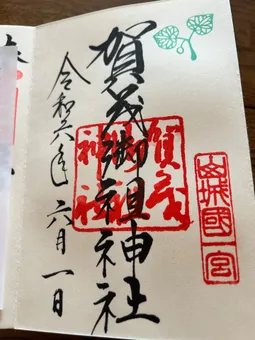 山城國一宮
賀茂御祖神社
賀茂御祖神社
令和六年六月一日
奉